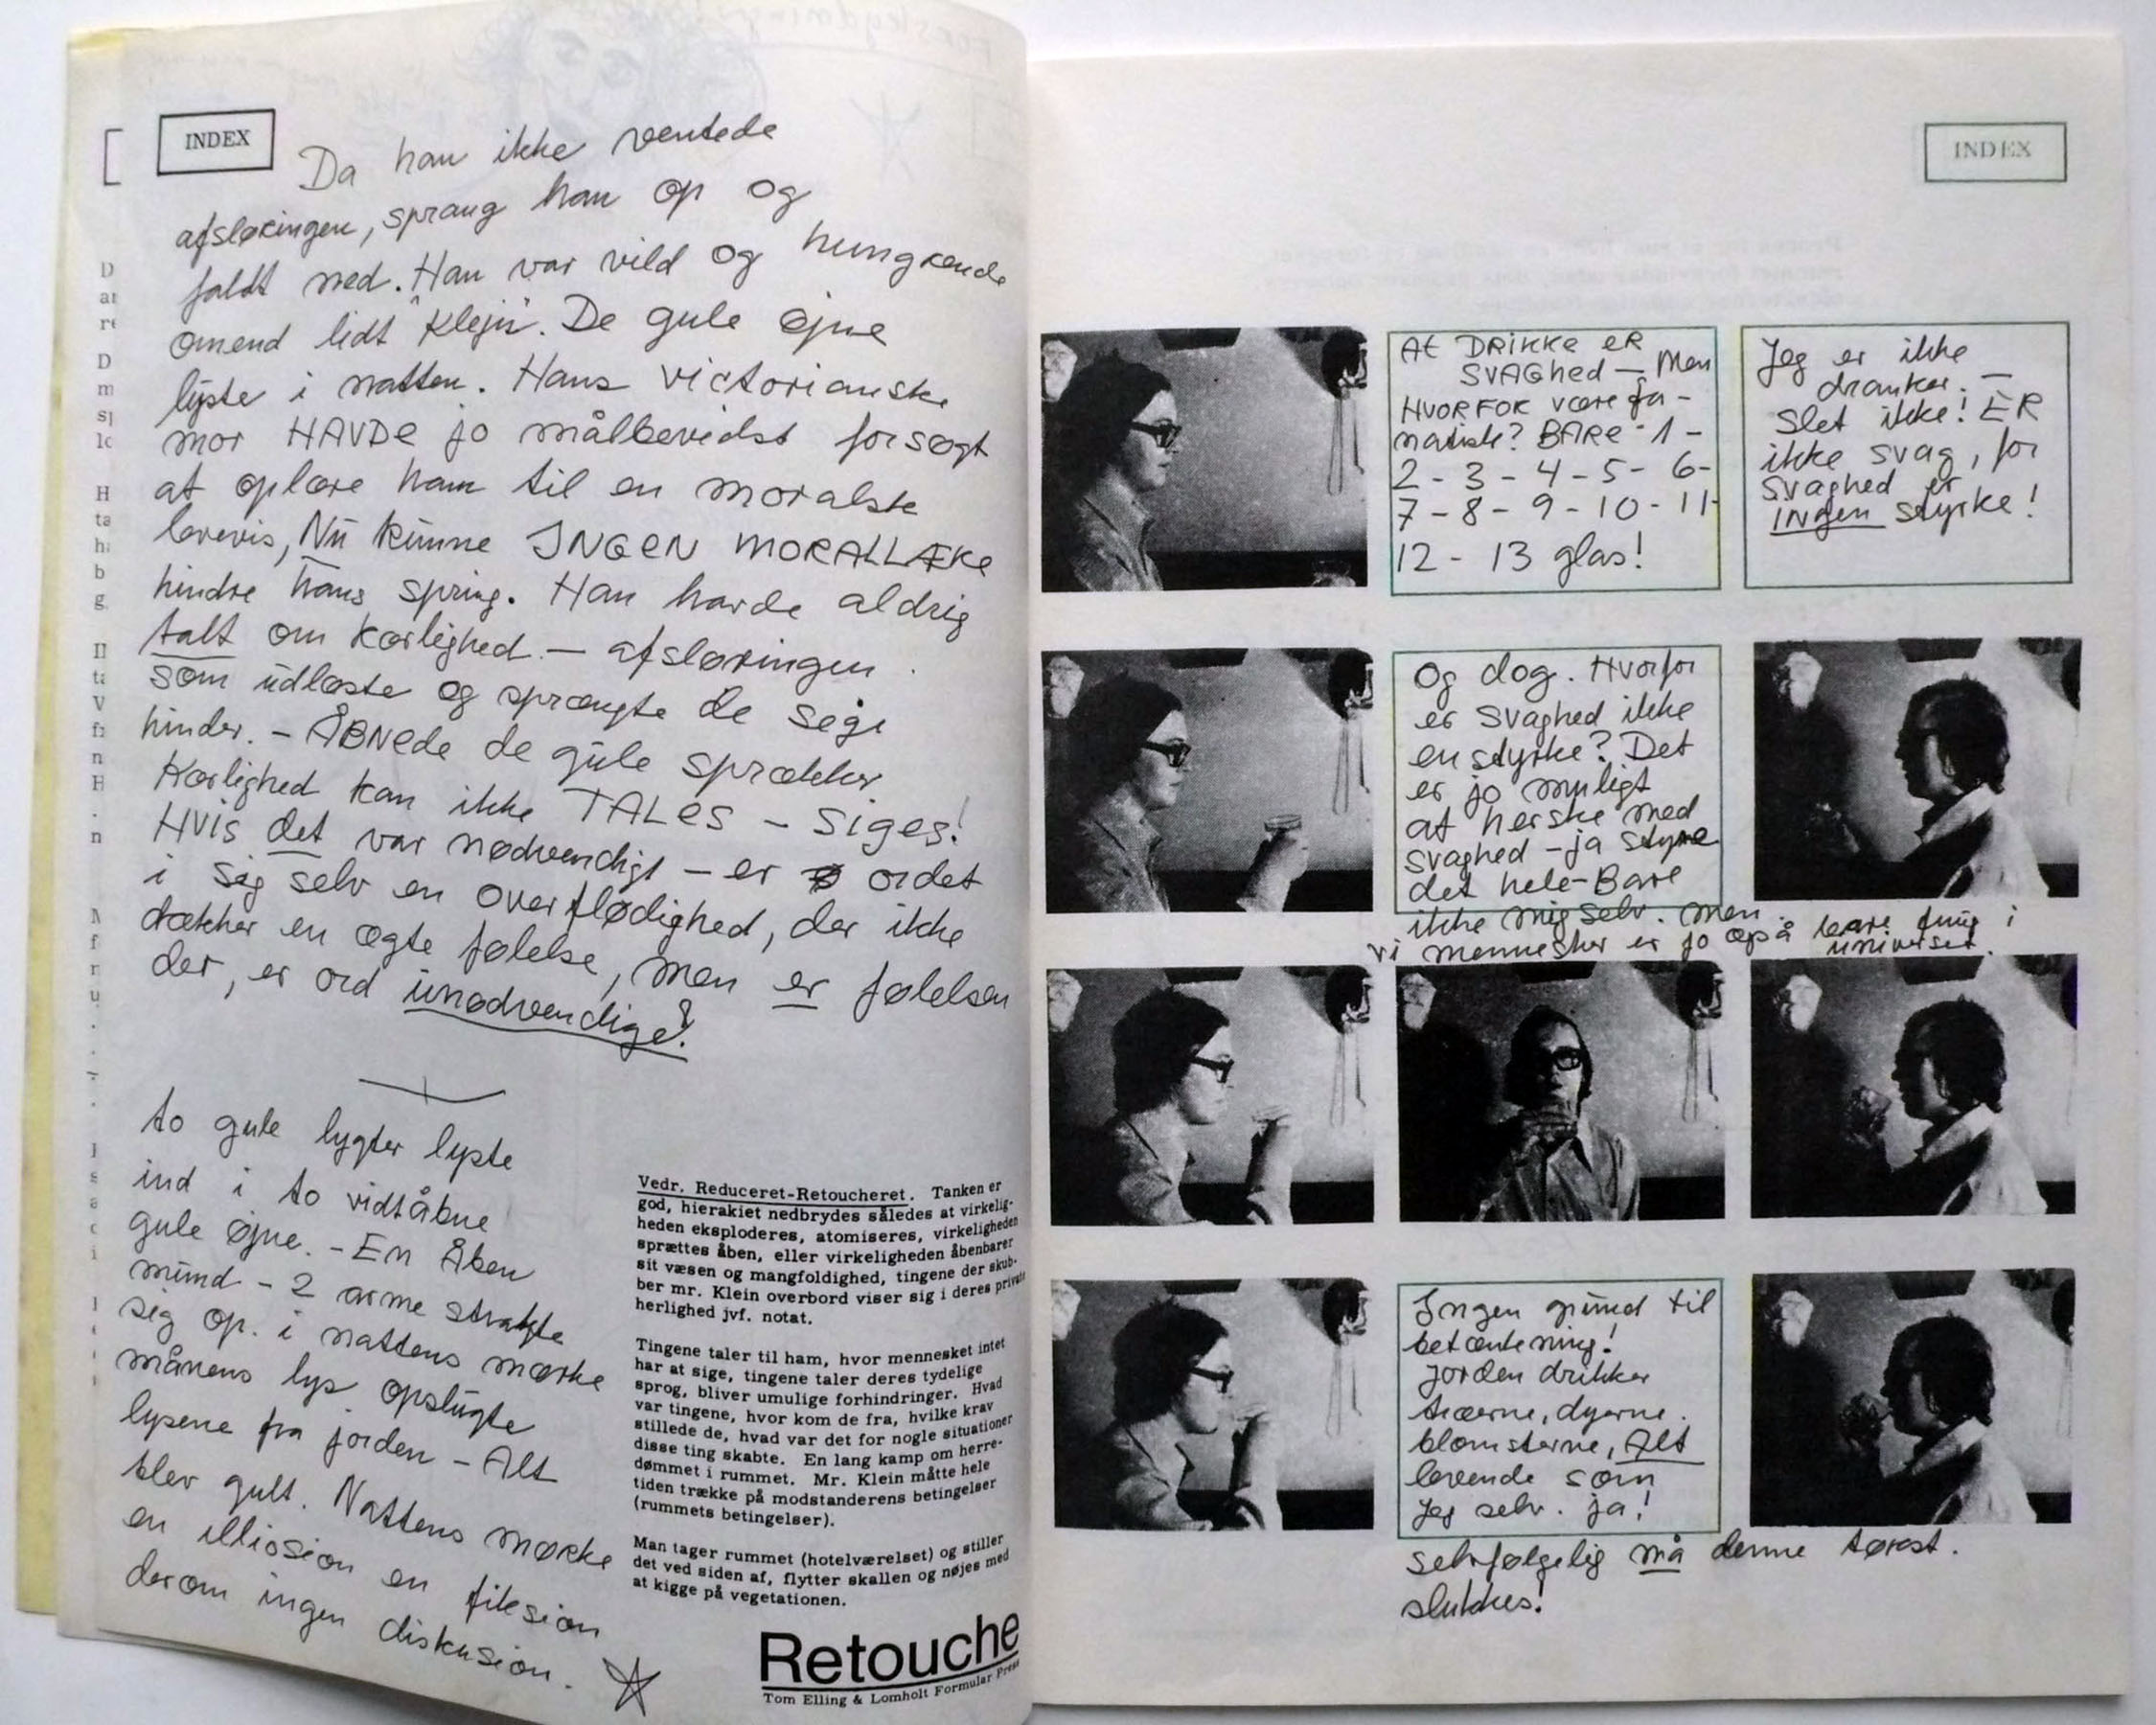 INDEX
Da han ikke ventede
afsløringen, sprang han op og
faldt ned. Han var vild og hungrende
omend lidt "Klejn". De gule øjne
lyste i natten. Hans victorianske
mor HAVDE jo målbevidst forsøgt
at oplære ham til en moralsk
levevis, Nu kunne INGEN MORALLÆRE
hindre hans spring. Han havde aldrig
talt om kærlighed — afsløringen
som udløste og sprængte de seje
hinder. - ÅBNede de gule sprækker
Kærlighed kan ikke TALES - Siges!
Hvis det var nødvendigt - er ordet
i sig selv en overflødighed, der ikke
dækker en ægte følelse, men er følelsen
der, er ord unødvendige!
to gule lygter lyste
ind i to vidtåbne
gule øjne. - En Åben
mund - 2 arme strakte
sig op. i nattens mørke
månens lys opslugte
lysene fra jorden - Alt
blev gult. Nattens mørke
en illiosion en fiksion
derom ingen diskusion.
Vedr. Reduceret-Retoucheret. Tanken er
god, hierakiet nedbrydes således at virkelig-
heden eksploderes, atomiseres, virkeligheden
sprættes åben, eller virkeligheden åbenbarer
sit væsen og mangfoldighed, tingene der skub-
ber mr. Klein overbord viser sig i deres private
herlighed jvf. notat.
Tingene taler til ham, hvor mennesket intet
har at sige, tingene taler deres tydelige
sprog, bliver umulige forhindringer. Hvad
var tingene, hvor kom de fra, hvilke krav
stillede de, hvad var det for nogle situationer
disse ting skabte. En lang kamp om herre-
dømmet i rummet. Mr. Klein måtte hele
tiden trække på modstanderens betingelser
(rummets betingelser).
Man tager rummet (hotelværelset) og stiller
det ved siden af, flytter skallen og nøjes med
at kigge på vegetationen.
Retouche
Tom Elling & Lomholt Formular Press
INDEX
At DRIKKE eR
SVAGhed — Men
HVORFOR være fa-
natisk? BARE - 1 -
2 - 3 - 4 - 5 - 6 -
7 - 8 - 9 - 10 - 11 -
12 - 13 glas!
Jeg er ikke
dranker. —
Slet ikke! ER
ikke svag, for
svaghed er
INgen styrke!
Og dog. Hvorfor
er svaghed ikke
en styrke? Det
er jo muligt
at herske med
svaghed - ja styre
det hele - Bare
ikke mig selv. men
vi mennesker er jo også bare i
universet.
Ingen grund til
betænkning!
Jorden drikker
træerne, dyrene.
blomsterne, Alt
levende som
jeg selv. ja!
selvfølgelig må denne tørst.
slukkes!